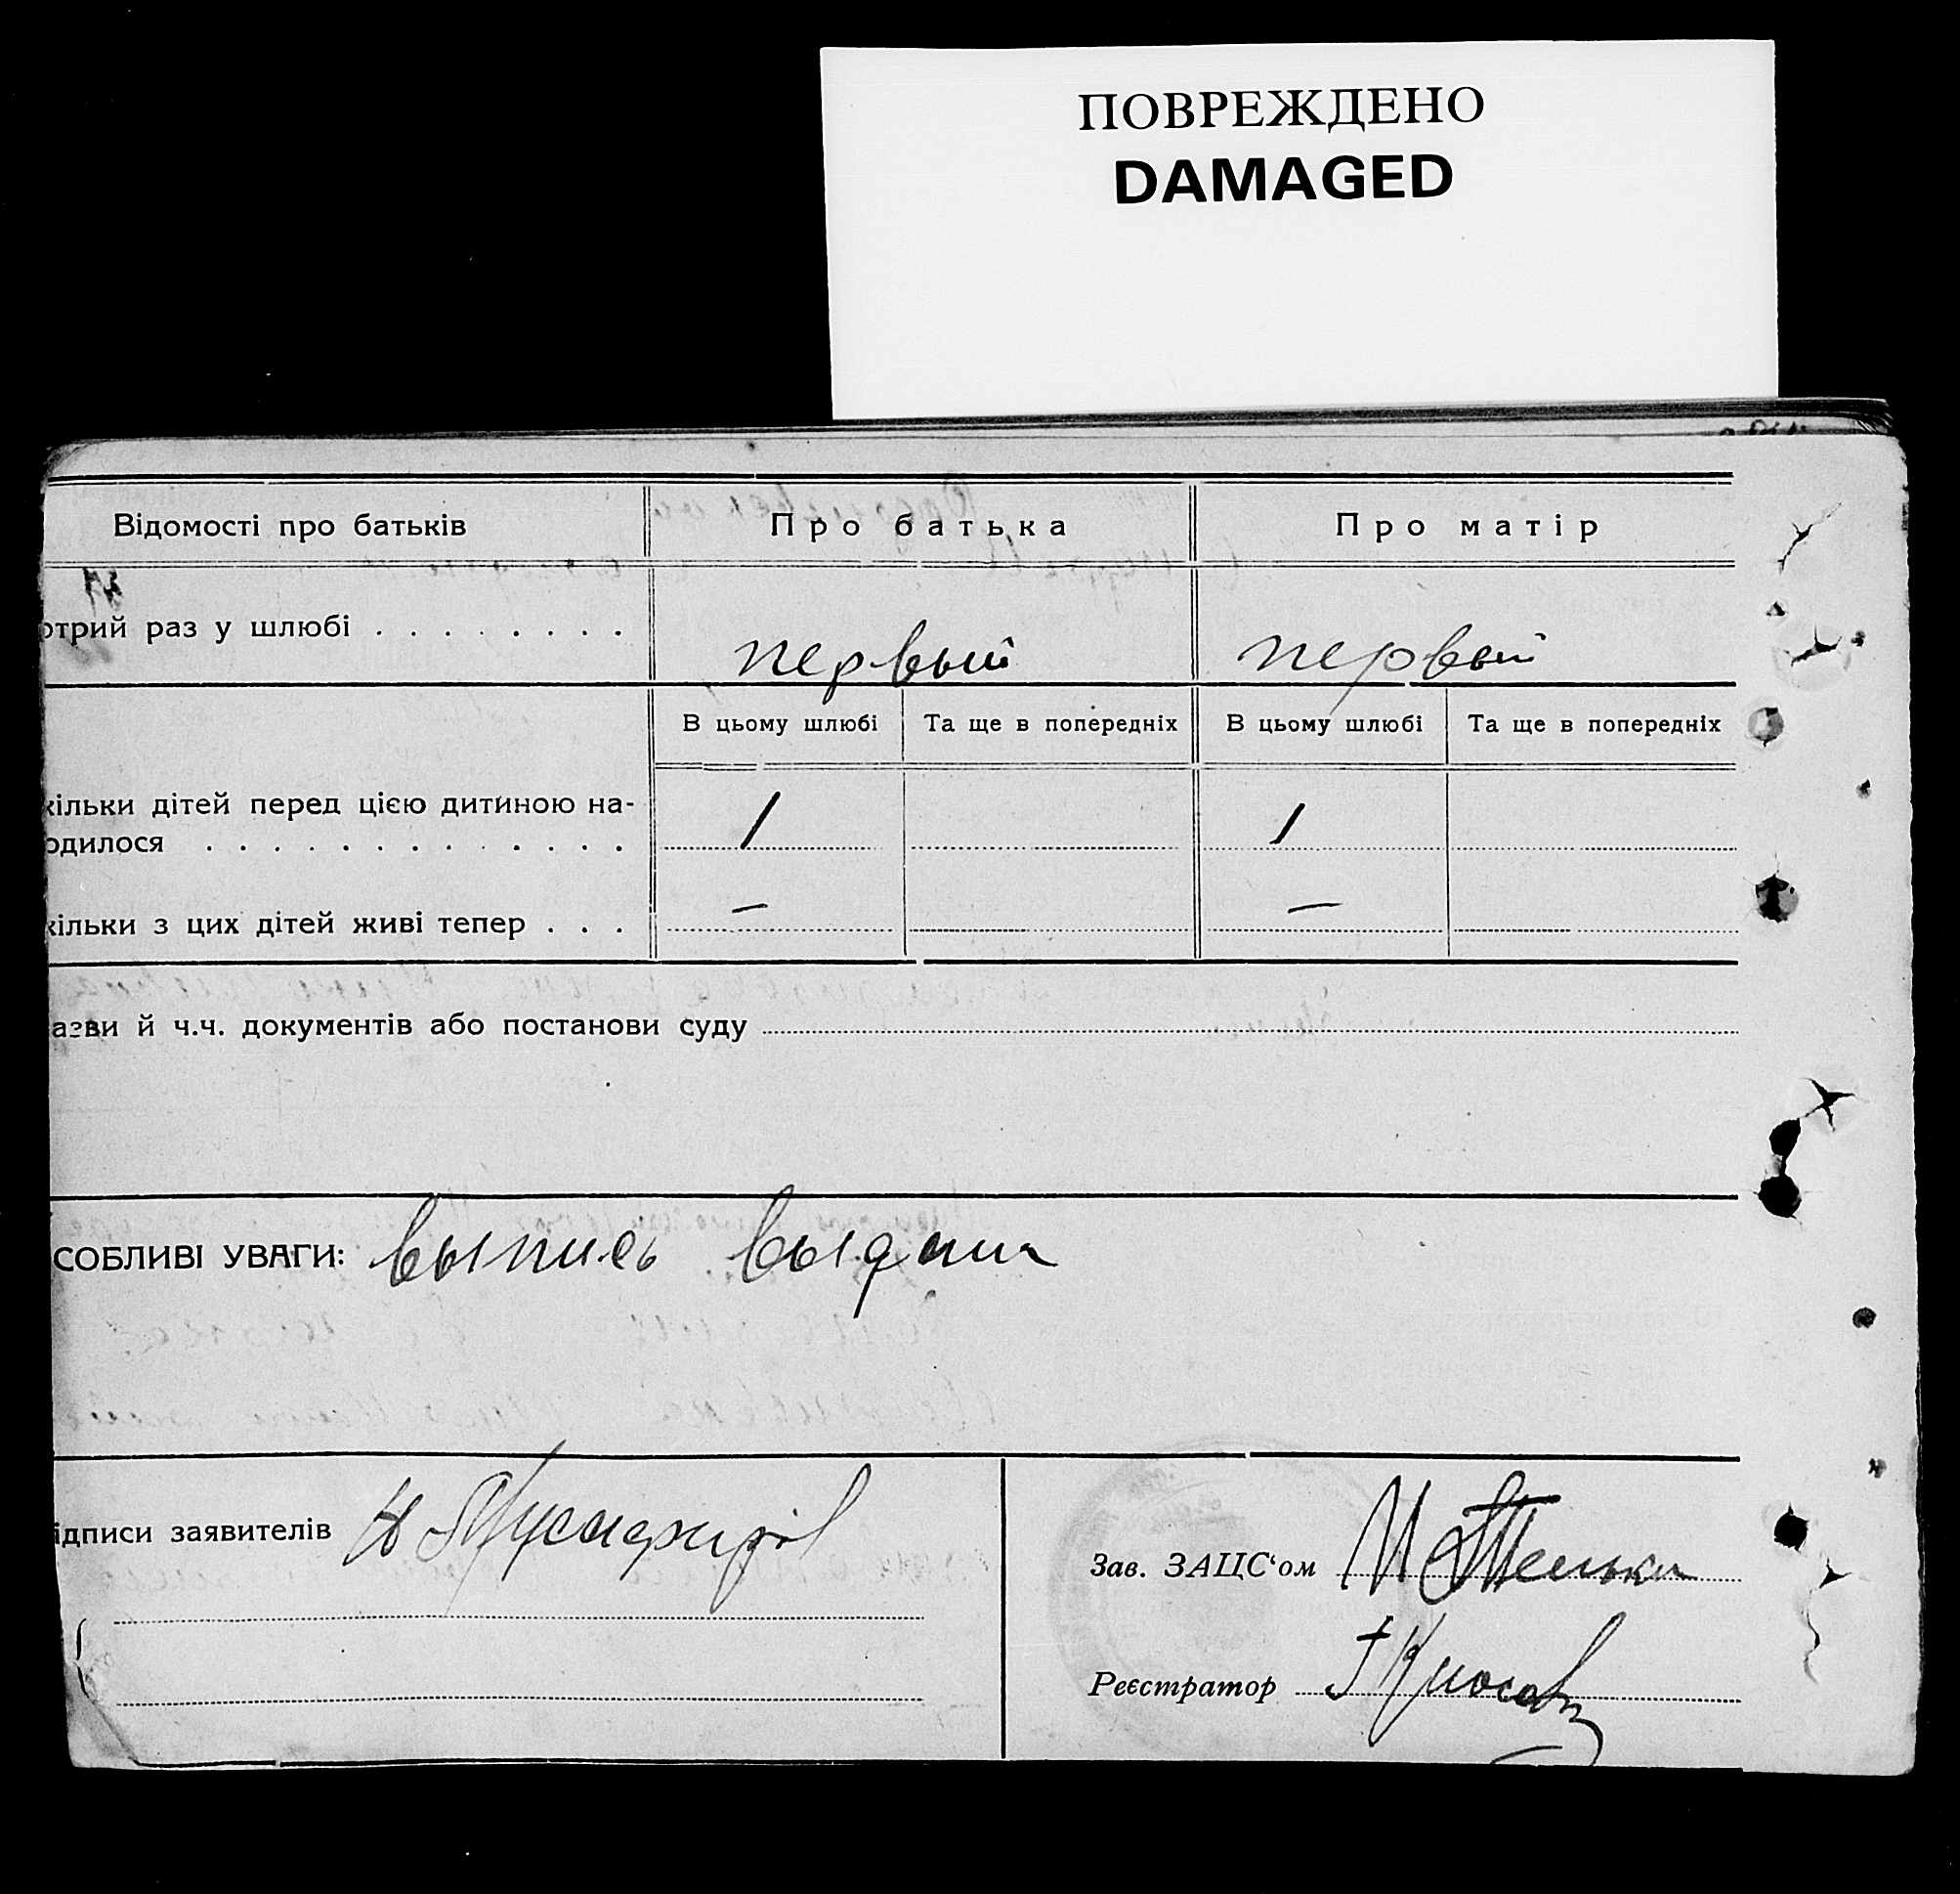 ПОВРЕЖДЕНО
DAMAGED
Відомості про батьків
Про батька
Про матір
отрий раз у шлюбі
первый
первый
В цьому шлюбі
Та ще в попередніх
В цьому шлюбі
Та ще в попередніх
кільки дітей перед цією дитиною на-
одилося
1
1
кільки з цих дітей живі тепер
—
—
азви й ч.ч. документів або постанови суду
СОБЛИВІ УВАГИ: выпись выдана
ідписи заявителів
Зав. ЗАЦС‘ом
Реєстратор